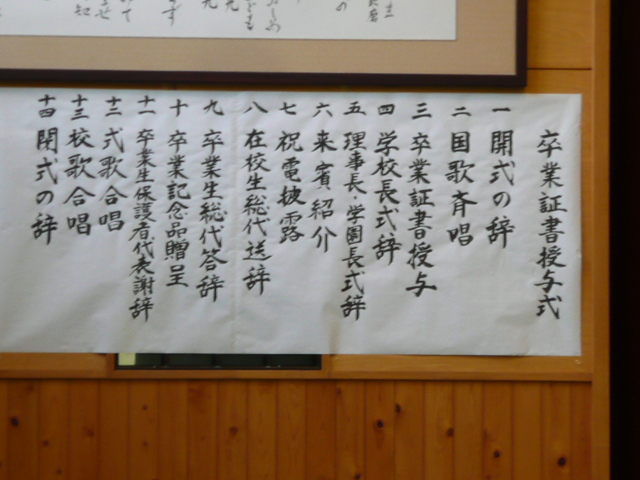 卒業証書授与式
一 開式の辞
二 国歌斉唱
三 卒業証書授与
四 学校長式辞
五 理事長・学園長式辞
六 来賓紹介
七 祝電披露
八 在校生総代送辞
九 卒業生総代答辞
十 卒業記念品贈呈
十一 卒業生保護者代表謝辞
十二 式歌合唱
十三 校歌合唱
十四 閉式の辞